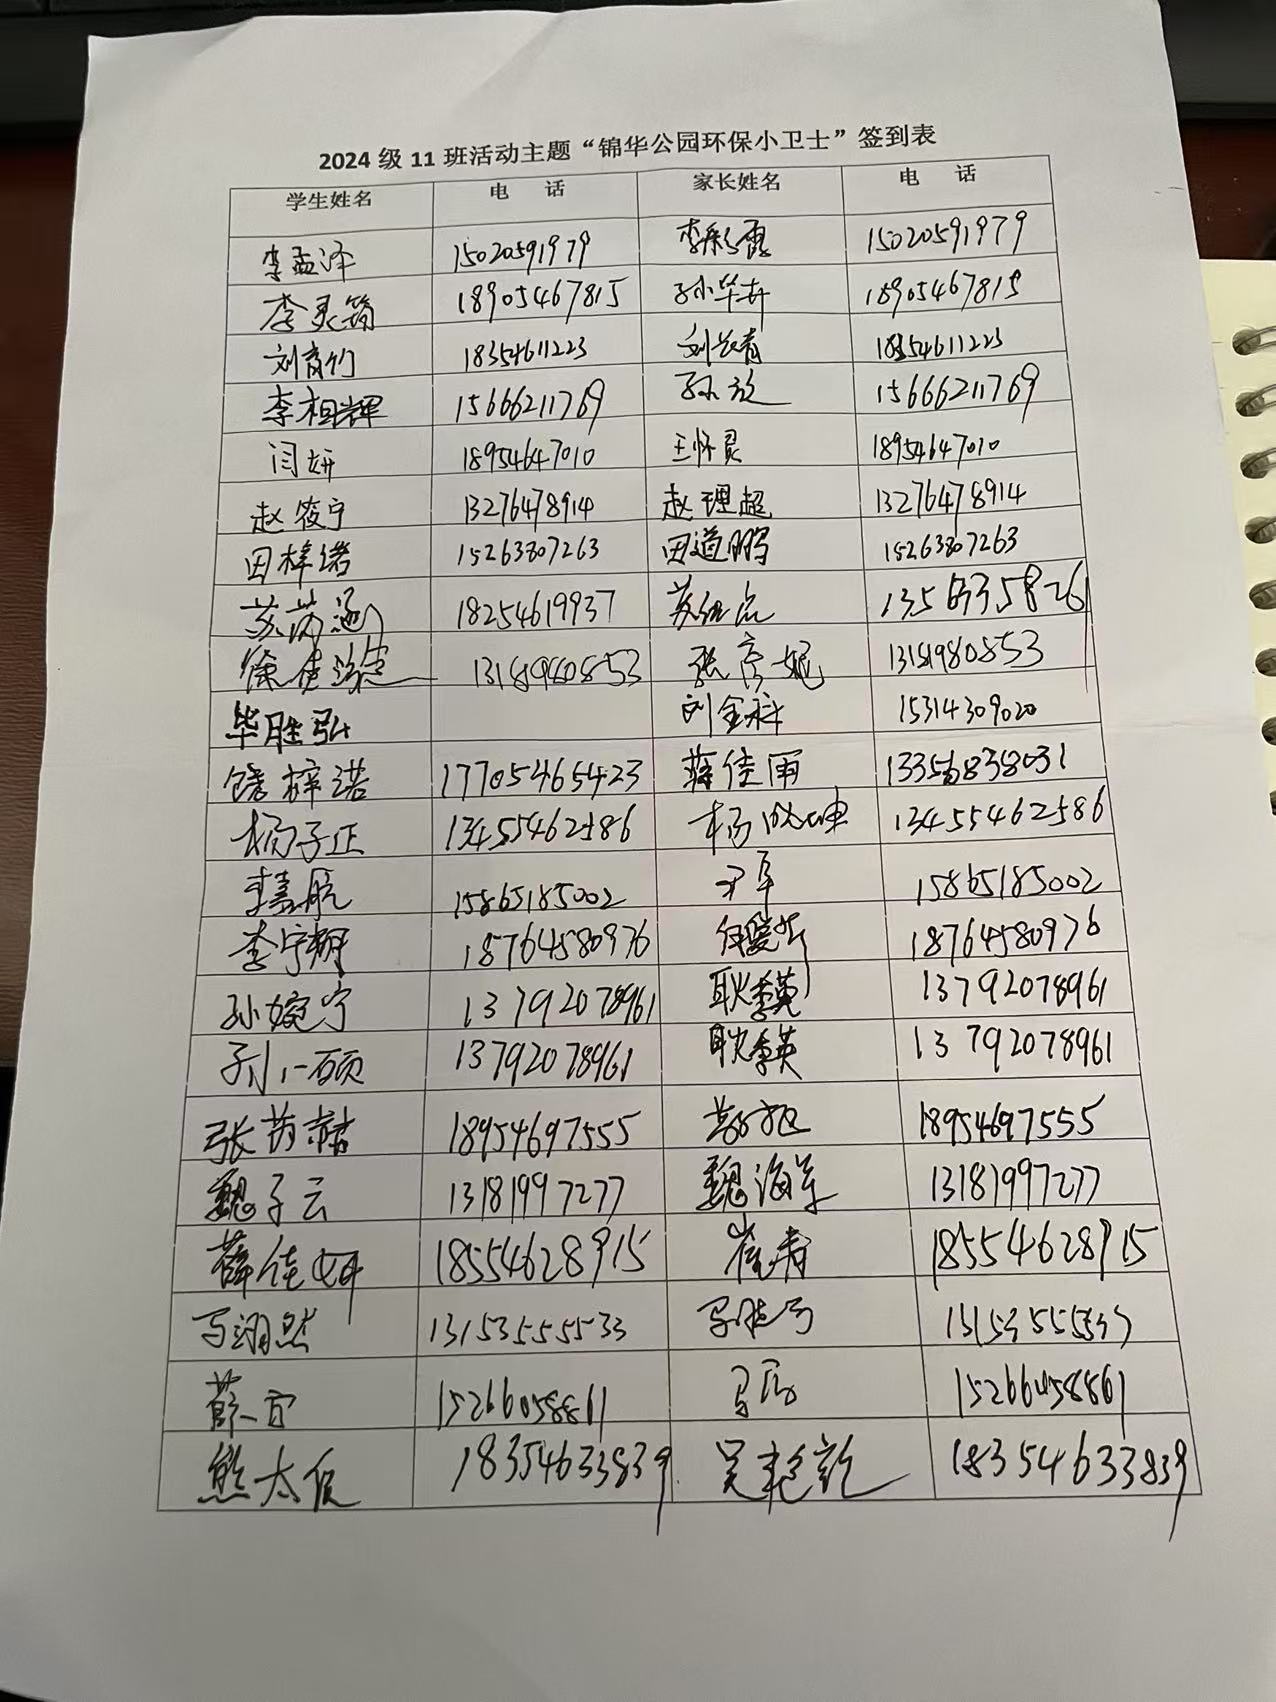 2024 级 11 班活动主题“锦华公园环保小卫士”签到表
学生姓名 电 话 家长姓名 电 话
李孟泽 15020591979 李彩霞 15020591979
李灵筠 18905467815 孙华卉 18905467815
刘育竹 18354611223 刘长青 18354611223
李相辉 15666211769 15666211769
闫妍 18954647010 王怀灵 18954647010
赵筱宁 13276478914 赵理超 13276478914
田梓诺 15263807263 田道鹏 15263807263
18254619937 13563358261
13181980853 张彦妮 13181980853
毕胜弘 刘金科 15314309020
饶梓诺 17705465423 蒋佳雨 13356838031
杨子正 13455462586 杨成坤 13455462586
李嘉航 15865185002 15865185002
李宁翱 18764580976 18764580976
孙婉宁 13792078961 耿季英 13792078961
孙一硕 13792078961 耿季英 13792078961
18954697555 18954697555
魏子云 13181997277 魏海军 13181997277
薛佳妍 18554628915 崔寿 18554628915
马翊然 13153555533 13153555533
薛宁 15266058861 15266058861
熊太恒 18354633839 吴艳乾 18354633839